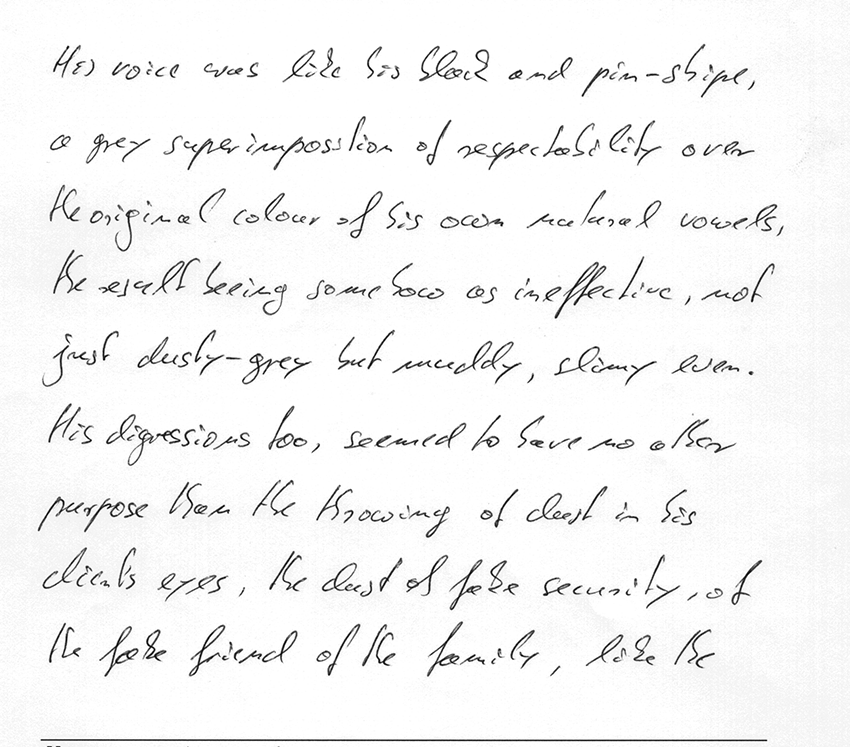 His voice was like his black and pin-stripe,
a grey superimposition of respectability over
the original colour of his own natural vowels,
the result beeing somehow as ineffective, not
just dusty-grey but muddy, slimy even.
His digressions too, seemed to have no other
purpose than the throwing of dust in his
client's eyes, the dust of fake security, of
the fake friend of the family, like the